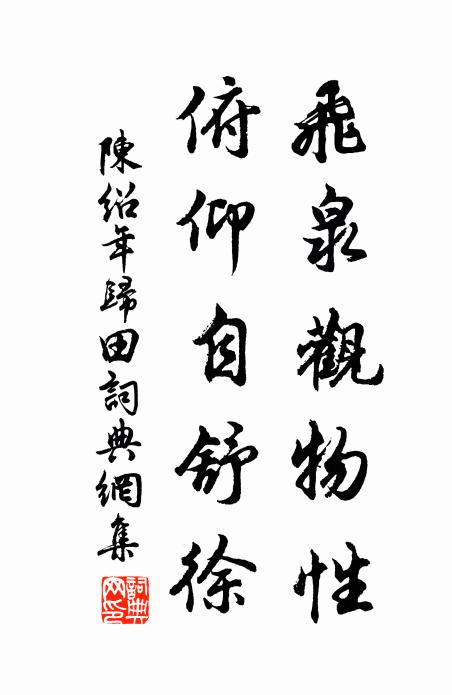 飛泉觀物性
俯仰自舒徐
陳紹年歸田詞典網集
詞典網印